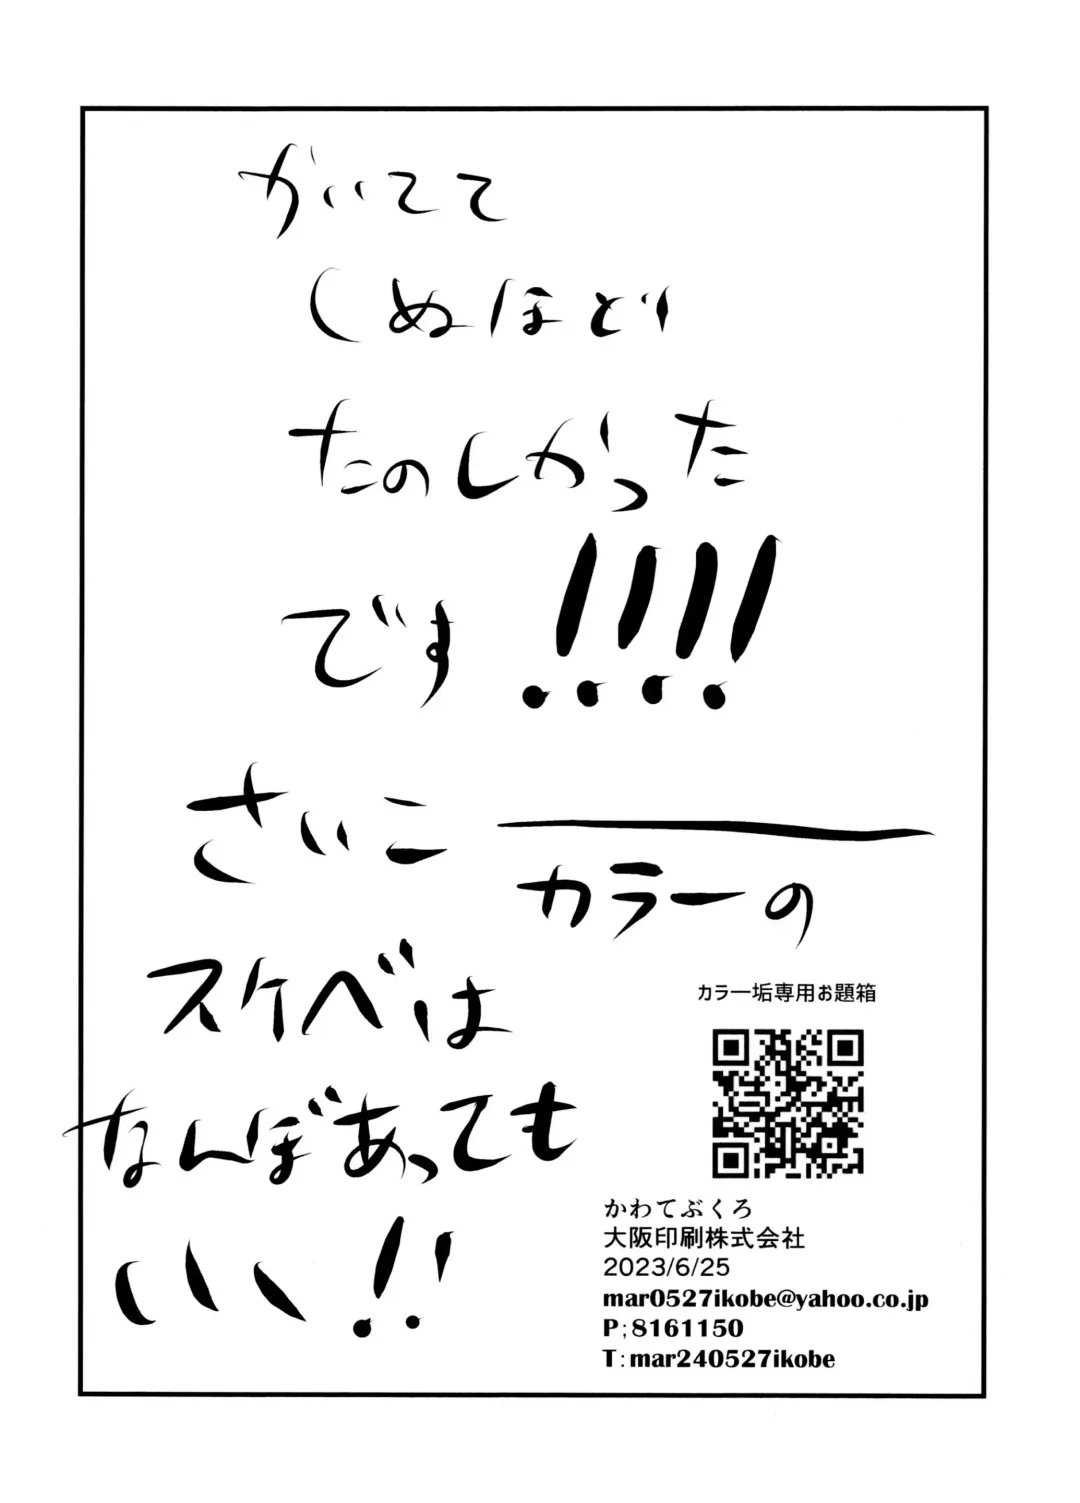 かいてて
しぬほど
たのしかった
です!!!!
さいこー
カラーの
スケベは
なんぼあっても
いい!!
カラー垢専用お題箱
かわてぶくろ
大阪印刷株式会社
2023/6/25
mar0527ikobe@yahoo.co.jp
P;8161150
T:mar240527ikobe